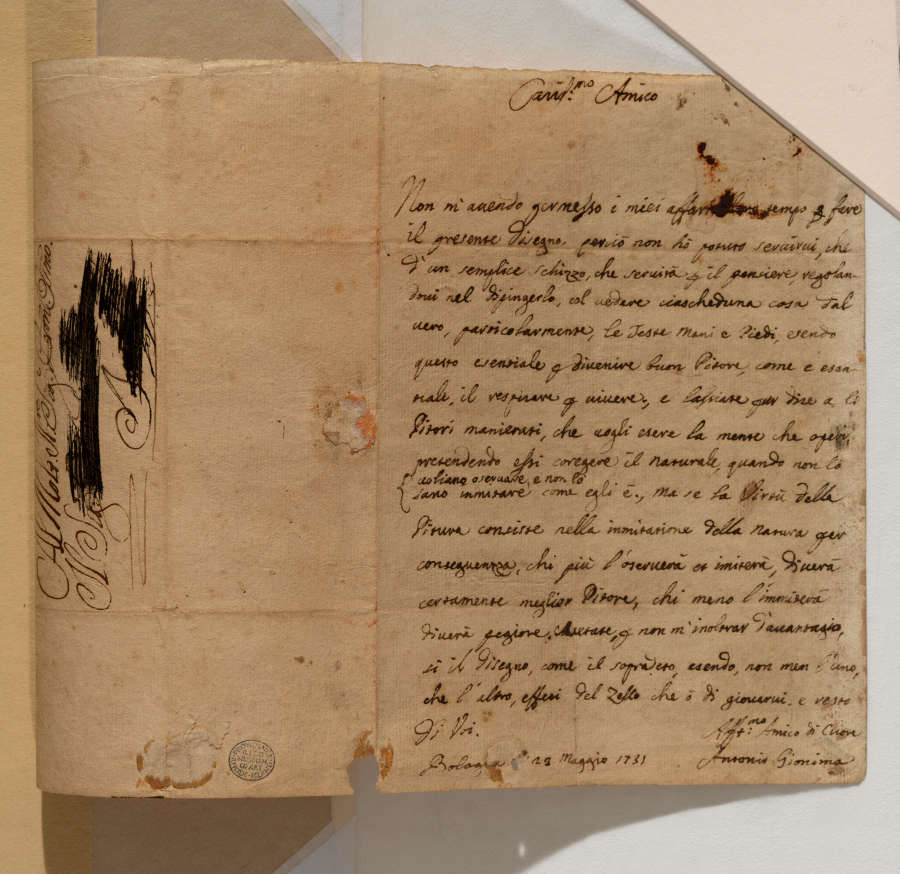 Cariss.mo Amico
Non m'auendo permesso i miei affari temps p fare
il presente disegno, perciò non hò potuto seruirui, che
d'un semplice schizzo, che seruirà p il pensiere, regolan-
doui nel dipingerlo, col uedere ciascheduna cosa dal
uero, particolarmente, le Teste Mani e Piedi, esendo
questo esentiale p diuenire buon Pitore, come e esen-
tiale, il respirare p uiuere, e lassiate pur dire a li
Pitori manierati, che uogli esere la mente che operi,
pretendendo essi coregere il naturale, quando non lo
uogliano oseruare, e non lo
sano immitare come egli è, ma se la Virtù della
Pitura consiste nella immitatione della natura per
conseguenza, chi più l'oseruerà et imiterà, diuerà
certamente meglior Pitore, chi meno l'immiterà
diuerà pegiore, p non m'inoltrar d'auantagio,
si il disegno, come il sopradeto, esendo, non men l'uno,
che l'altro, effeti del Zello che ò di giouarui, e resto
di Voi. Aff.mo Amico di Cuore
Bologna 28 Maggio 1731 Antonio Gionima
Al Molto